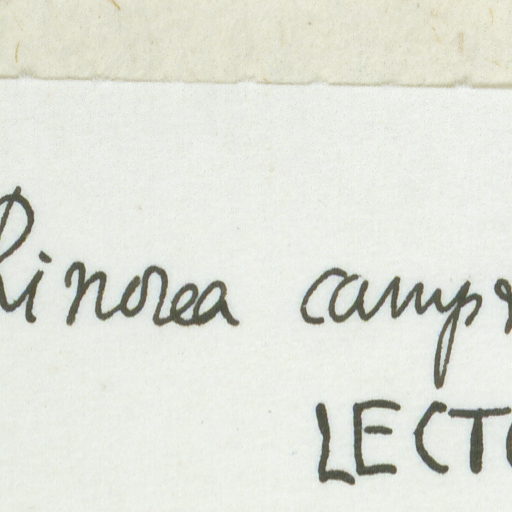 Rinorea camp
LECTO